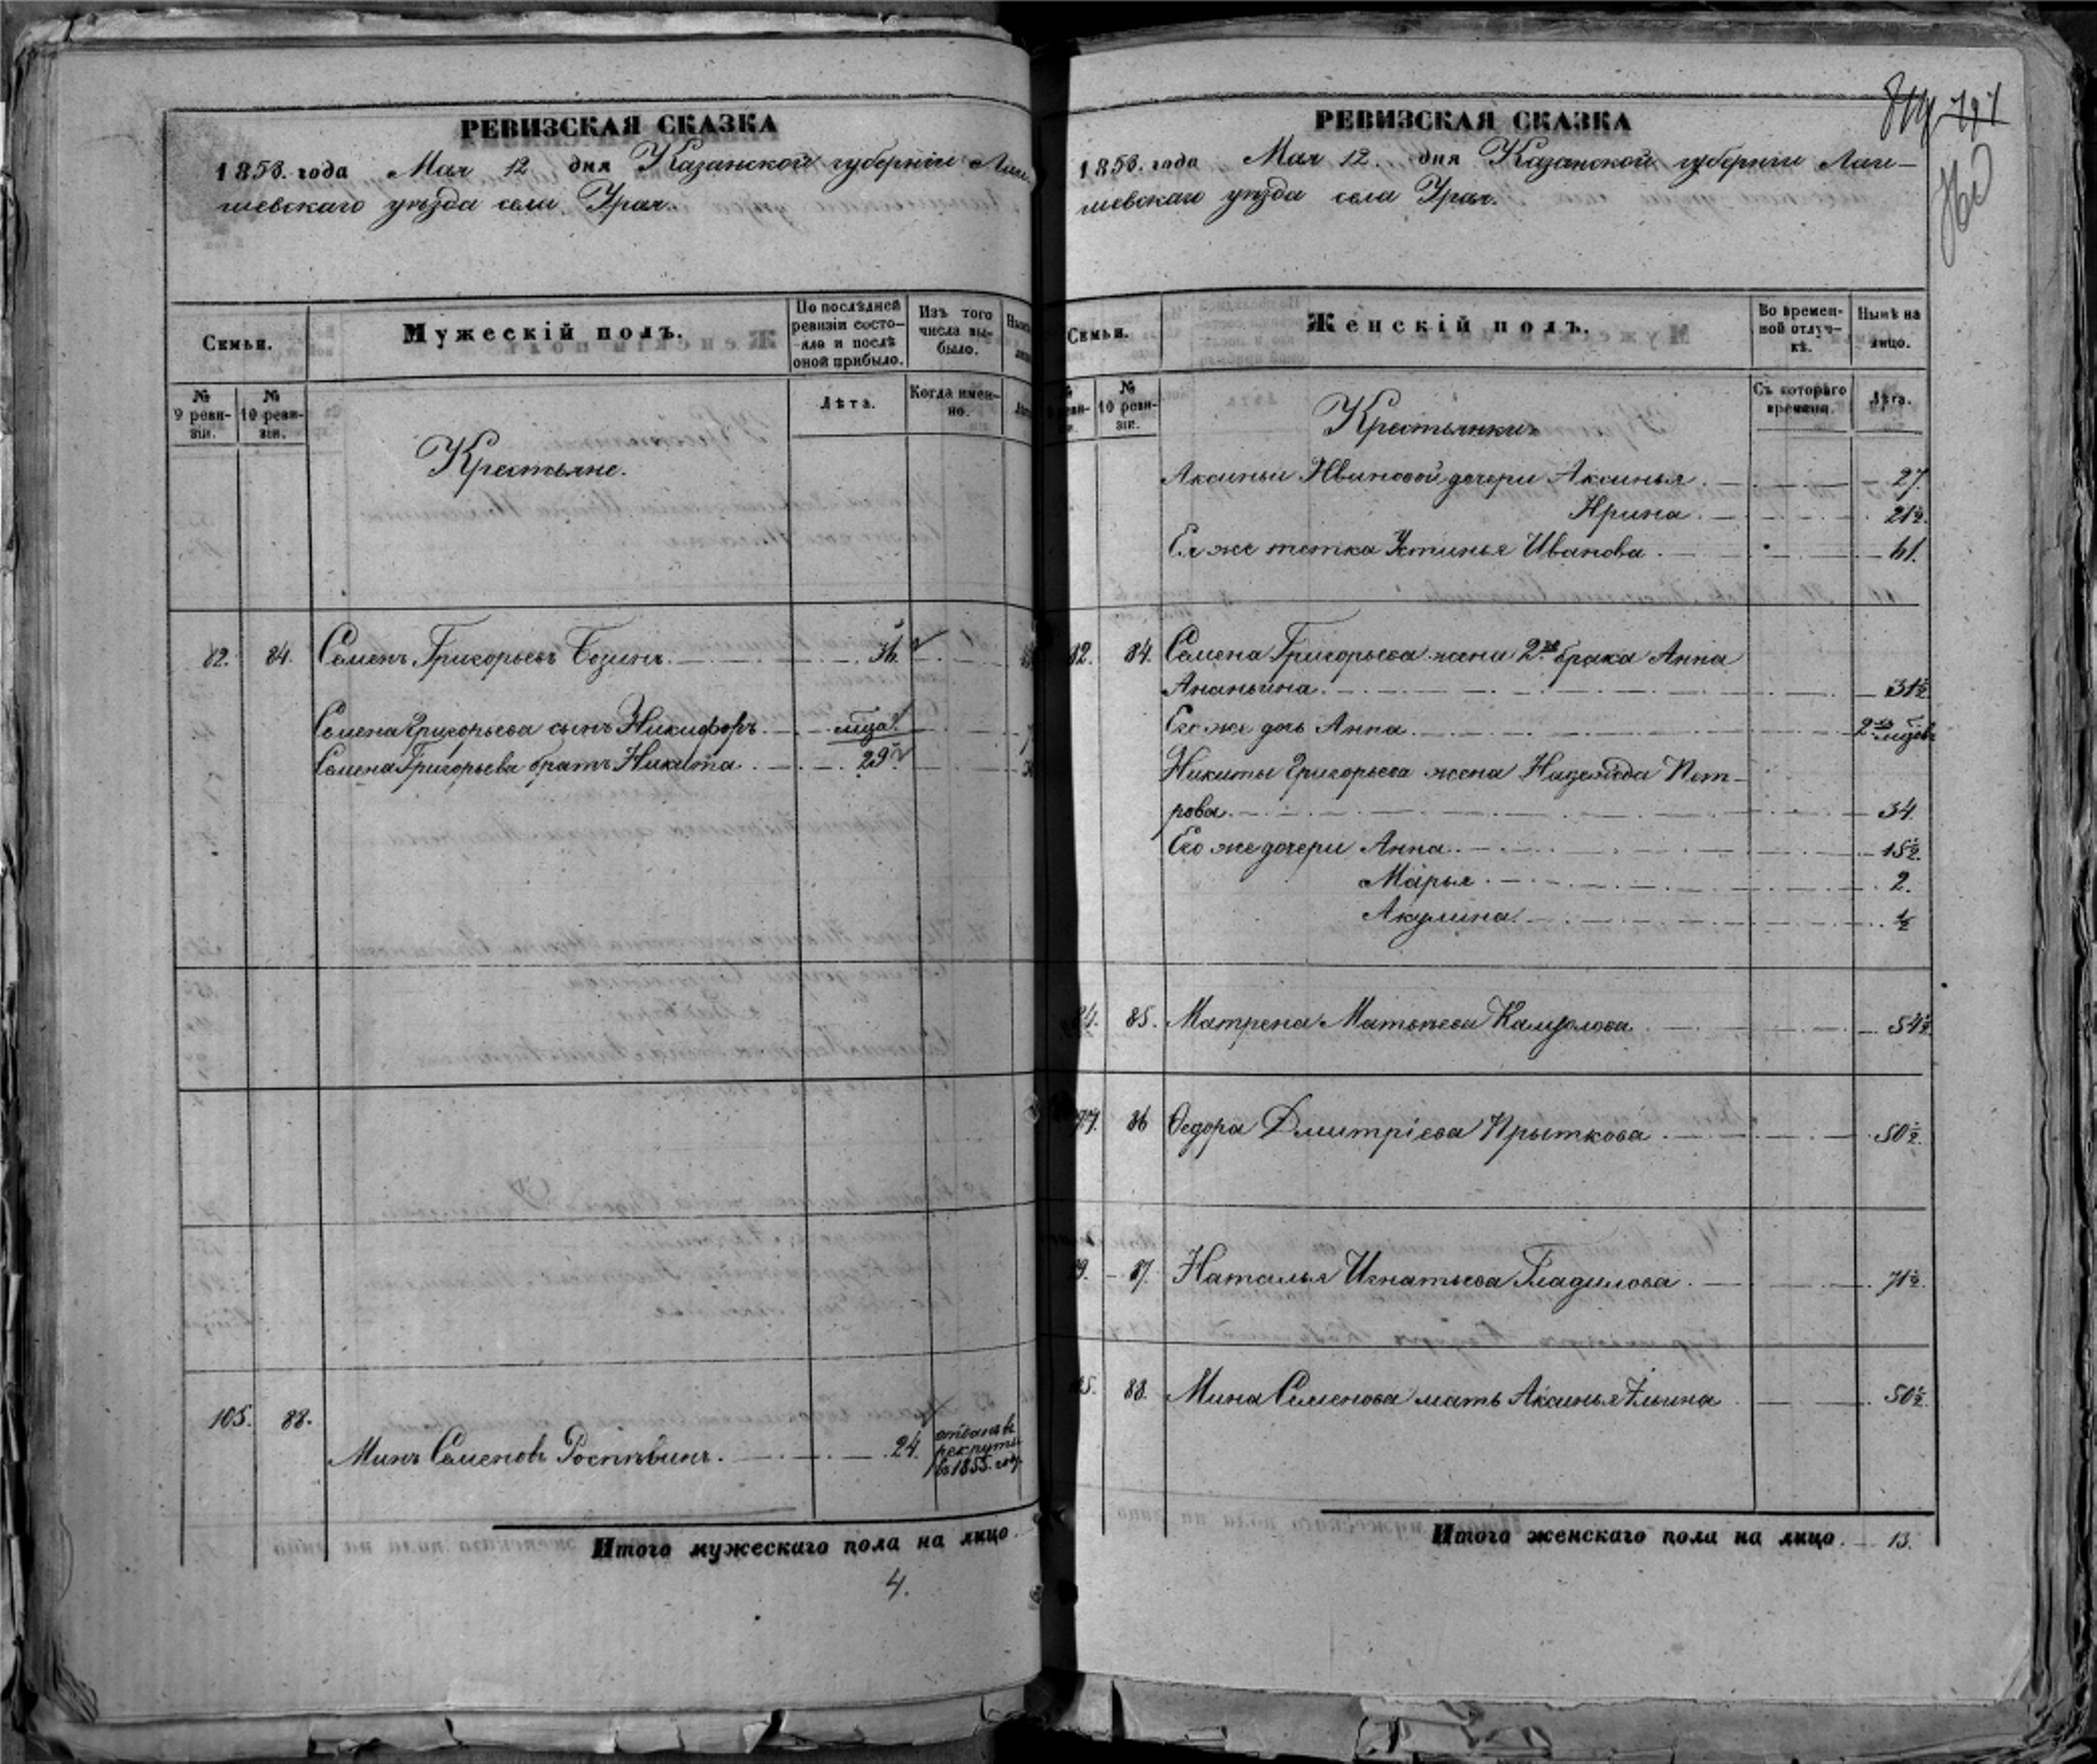 РЕВИЗСКАЯ СКАЗКА
1858. года Мая 12 дня Казанской губерніи Лаи-
шевскаго уѣзда села Урая.
Семьи.
Мужескій полъ.
По послѣдней
ревизіи состо-
яло и послѣ
оной прибыло.
Изъ того
числа вы-
было.
№
9 реви-
зіи.
№
10 реви-
зіи.
Лѣта.
Когда имен-
но.
Крестьяне.
82. 84. Семенъ Григорьевъ 36.
Семена Григорьева сынъ Никифоръ.
Семена Григорьева братъ Никита 29
105. 88.
Минъ Семеновъ 24. отданъ въ
рекруты
въ 1855. году
Итого мужескаго пола на лицо
4.
РЕВИЗСКАЯ СКАЗКА
1858. года Мая 12. дня Казанской губерніи Лаи-
шевскаго уѣзда села Урая.
Семьи.
Женскій полъ.
Во времен-
ной отлуч-
кѣ.
Нынѣ на
лицо.
№
10 реви-
зіи.
Съ котораго
времени.
Лѣта.
Крестьянки
Аксиньи Ивановой дочери Аксинья 27.
Ирина 21½.
Ея же тетка Устинья Иванова 61.
82. 84. Семена Григорьева жена 2го брака Анна
Ананьина 31½
Его же дочь Анна
Никиты Григорьева жена Надежда Пет-
рова 34.
Его же дочери Анна 15½.
Марья 2.
Акулина ½
85. Матрена Матвѣева 54½
86 Ѳедора Дмитріева Прыткова 50½.
87. Наталья Игнатьева Гладилова 71½.
88. Мина Семенова мать Аксинья Ильина 50½.
Итого женскаго пола на лицо 13.